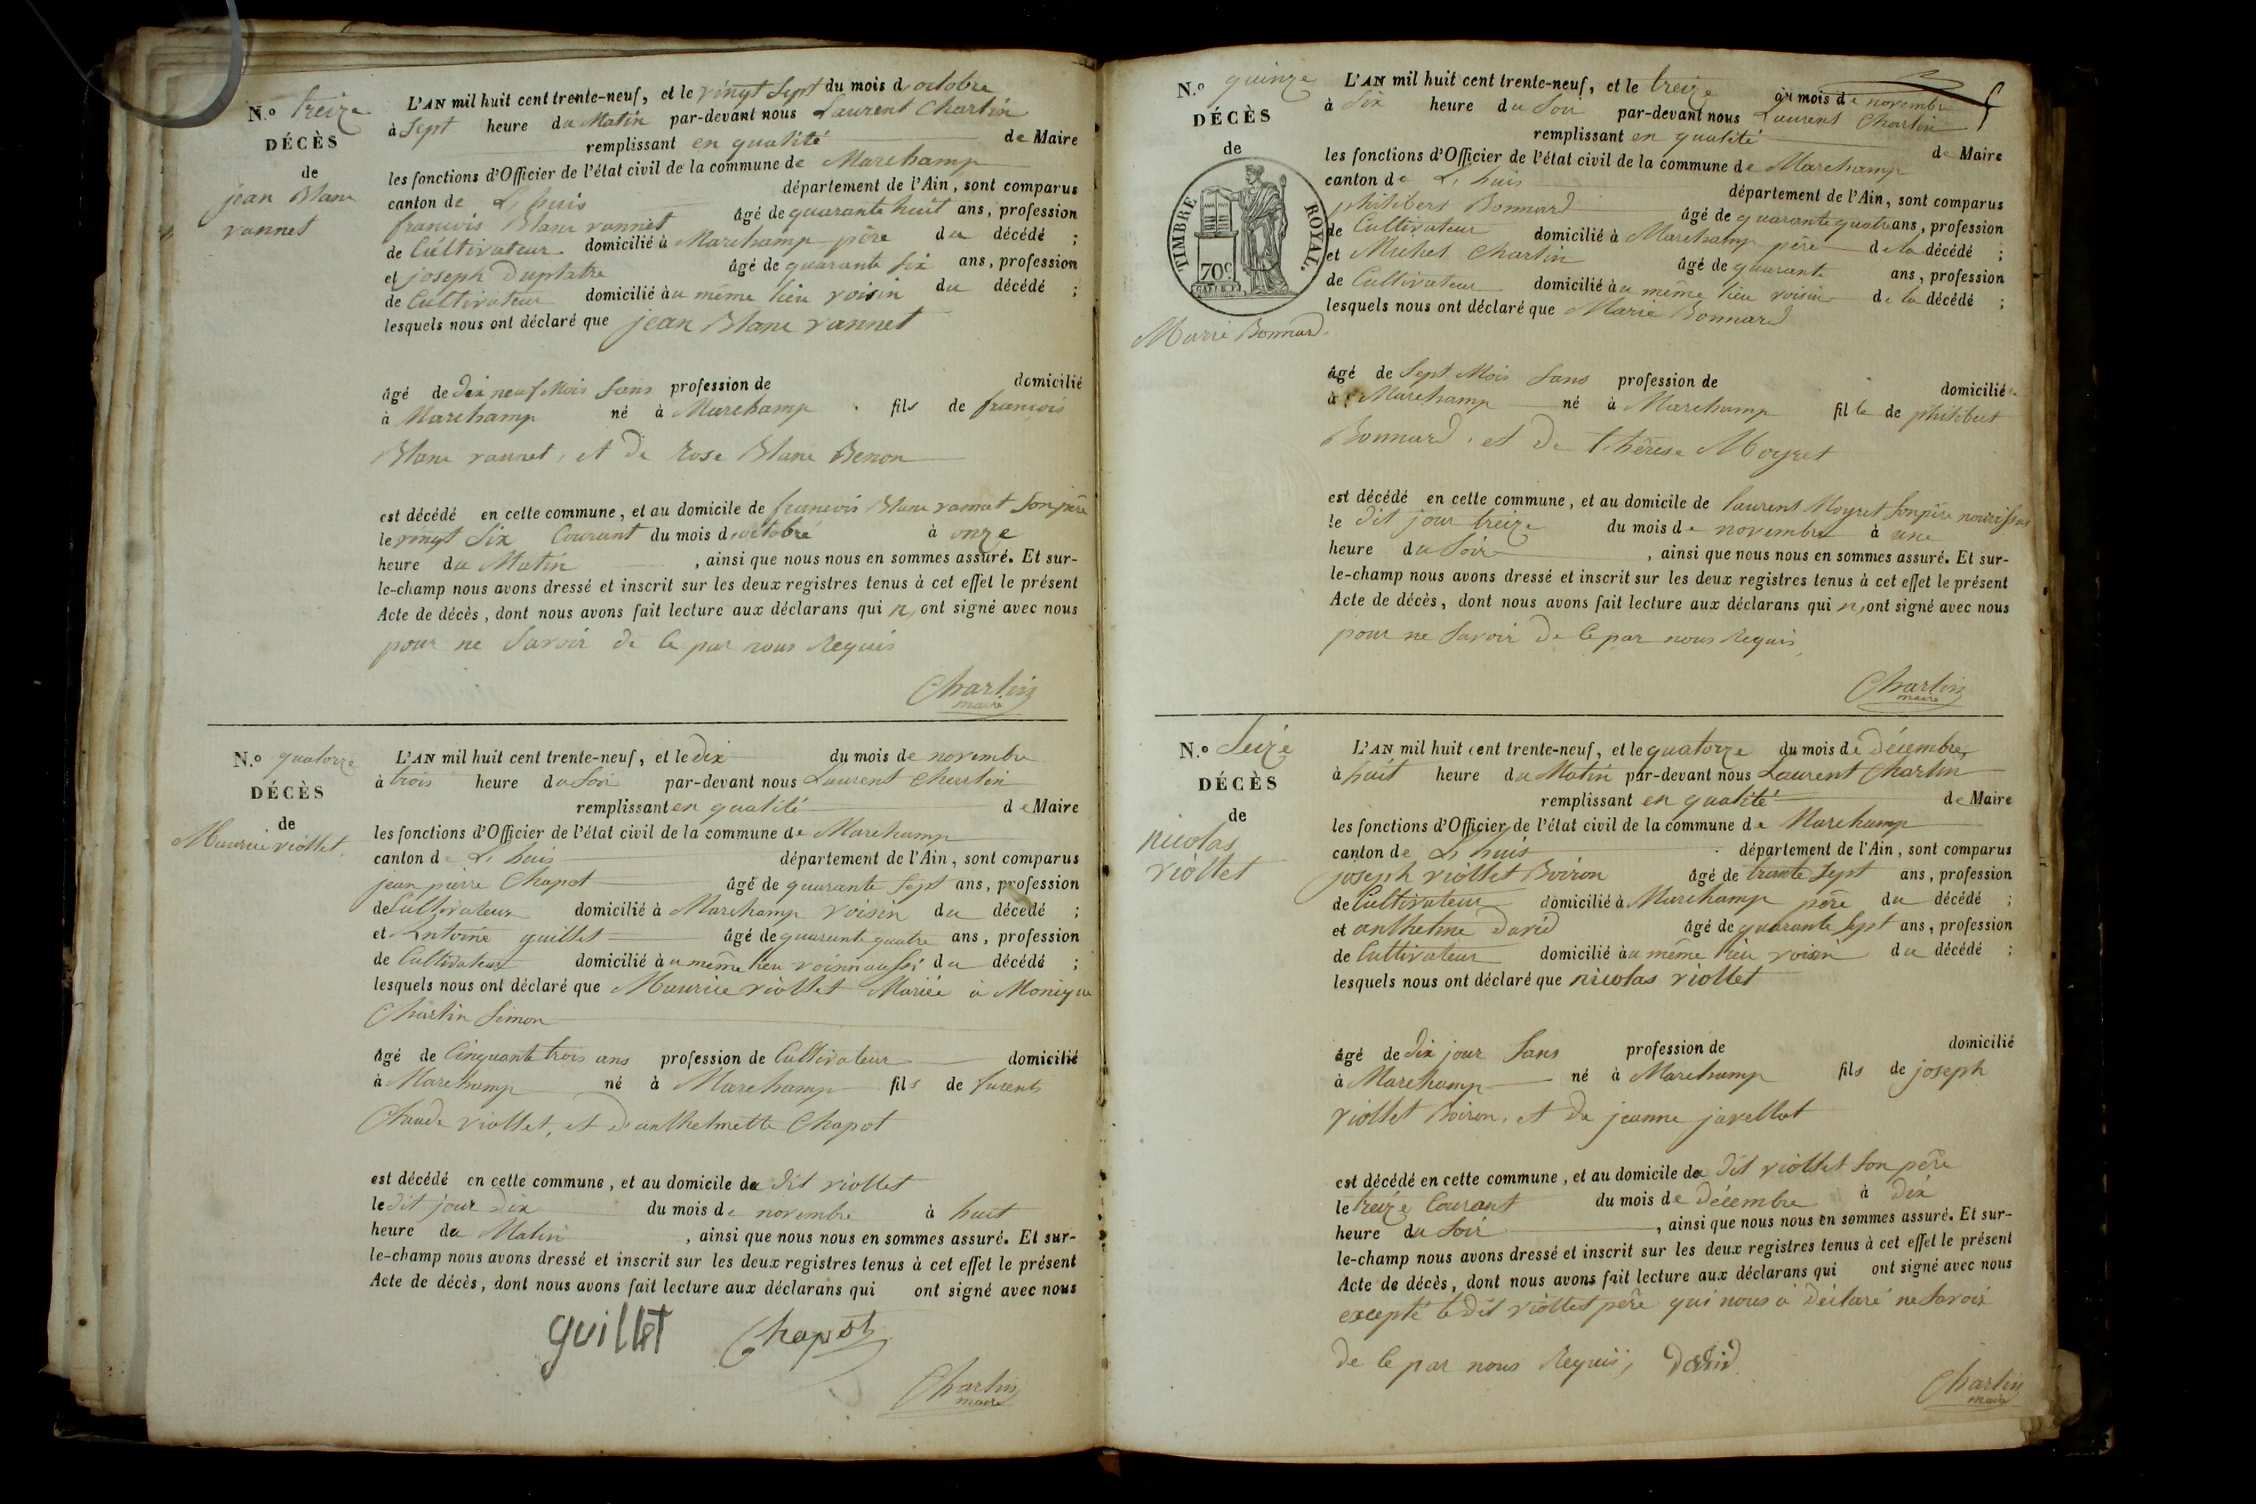 N.o treize
DÉCÈS
de
jean Blanc
vannet
L'AN mil huit cent trente-neuf, et le vingt Sept du mois d'octobre
à Sept heure du Matin par-devant nous Laurent Chartin
remplissant en qualité de Maire
les fonctions d'Officier de l'état civil de la commune de Marchamp
canton de L'huis département de l'Ain, sont comparus
françois Blanc vannet âgé de quarante huit ans, profession
de Cultivateur domicilié à Marchamp père du décédé ;
et joseph Duplatre âgé de quarante Six ans, profession
de Cultivateur domicilié au même lieu voisin du décédé ;
lesquels nous ont déclaré que jean Blanc vannet
âgé de Dix neuf Mois Sans profession de domicilié
à Marchamp né à Marchamp fils de françois
Blanc vannet, et de Rose Blanc Benon
est décédé en cette commune, et au domicile de françois Blanc vannet Son père
le vingt Six Courant du mois d'octobre à onze
heure du Matin , ainsi que nous nous en sommes assuré. Et sur-
le-champ nous avons dressé et inscrit sur les deux registres tenus à cet effet le présent
Acte de décès, dont nous avons fait lecture aux déclarans qui n'ont signé avec nous
pour ne Savoir de Ce par nous Requis
Chartin
maire
N.o quatorze
DÉCÈS
de
Maurice viollet
L'AN mil huit cent trente-neuf, et le Dix du mois de novembre
à trois heure du Soir par-devant nous Laurent Chartin
remplissant en qualité de Maire
les fonctions d'Officier de l'état civil de la commune de Marchamp
canton de L'huis département de l'Ain, sont comparus
jean pierre Chapot âgé de quarante Sept ans, profession
de Cultivateur domicilié à Marchamp voisin du décédé ;
et Antoine guillet âgé de quarante quatre ans, profession
de Cultivateur domicilié au même lieu voisin aussi du décédé ;
lesquels nous ont déclaré que Maurice viollet Mariée à Monique
Chartin Simon
âgé de Cinquante trois ans profession de Cultivateur domicilié
à Marchamp né à Marchamp fils de furent
Claude viollet, et d'anthelmette Chapot
est décédé en cette commune, et au domicile du Dit viollet
le Dit jour Dix du mois de novembre à huit
heure du Matin , ainsi que nous nous en sommes assuré. Et sur-
le-champ nous avons dressé et inscrit sur les deux registres tenus à cet effet le présent
Acte de décès, dont nous avons fait lecture aux déclarans qui ont signé avec nous
guillet Chapot
Chartin
maire
N.o quinze
DÉCÈS
de
TIMBRE ROYAL.
70c
Marie Bonnard
L'AN mil huit cent trente-neuf, et le treize du mois de novembre
à Six heure du Soir par-devant nous Laurent Chartin
remplissant en qualité de Maire
les fonctions d'Officier de l'état civil de la commune de Marchamp
canton de L'huis département de l'Ain, sont comparus
philibert Bonnard âgé de quarante quatre ans, profession
de Cultivateur domicilié à Marchamp père de la décédé ;
et Michel Chartin âgé de quarante ans, profession
de Cultivateur domicilié au même lieu voisin de la décédé ;
lesquels nous ont déclaré que Marie Bonnard
âgé de Sept Mois Sans profession de domiciliée
à Marchamp né à Marchamp fille de philibert
Bonnard, et de thérèse Moyret
est décédé en cette commune, et au domicile de laurent Moyret Son père nourissier
le dit jour treize du mois de novembre à une
heure du Soir , ainsi que nous nous en sommes assuré. Et sur-
le-champ nous avons dressé et inscrit sur les deux registres tenus à cet effet le présent
Acte de décès, dont nous avons fait lecture aux déclarans qui n'ont signé avec nous
pour ne Savoir de Ce par nous Requis,
Chartin
maire
N.o Seize
DÉCÈS
de
nicolas
viollet
L'AN mil huit cent trente-neuf, et le quatorze du mois de décembre
à huit heure du Matin par-devant nous Laurent Chartin
remplissant en qualité de Maire
les fonctions d'Officier de l'état civil de la commune de Marchamp
canton de L'huis département de l'Ain, sont comparus
joseph viollet Boiron âgé de trente Sept ans, profession
de Cultivateur domicilié à Marchamp père du décédé ;
et anthelme David âgé de quarante Sept ans, profession
de Cultivateur domicilié au même lieu voisin du décédé ;
lesquels nous ont déclaré que nicolas viollet
âgé de Dix jour Sans profession de domicilié
à Marchamp né à Marchamp fils de joseph
viollet Boiron, et de jeanne javellot
est décédé en cette commune, et au domicile du Dit viollet Son père
le treize Courant du mois de décembre à dix
heure du Soir , ainsi que nous nous en sommes assuré. Et sur-
le-champ nous avons dressé et inscrit sur les deux registres tenus à cet effet le présent
Acte de décès, dont nous avons fait lecture aux déclarans qui ont signé avec nous
excepté le dit viollet père qui nous a déclaré ne Savoir
de Ce par nous Requis, David
Chartin
maire